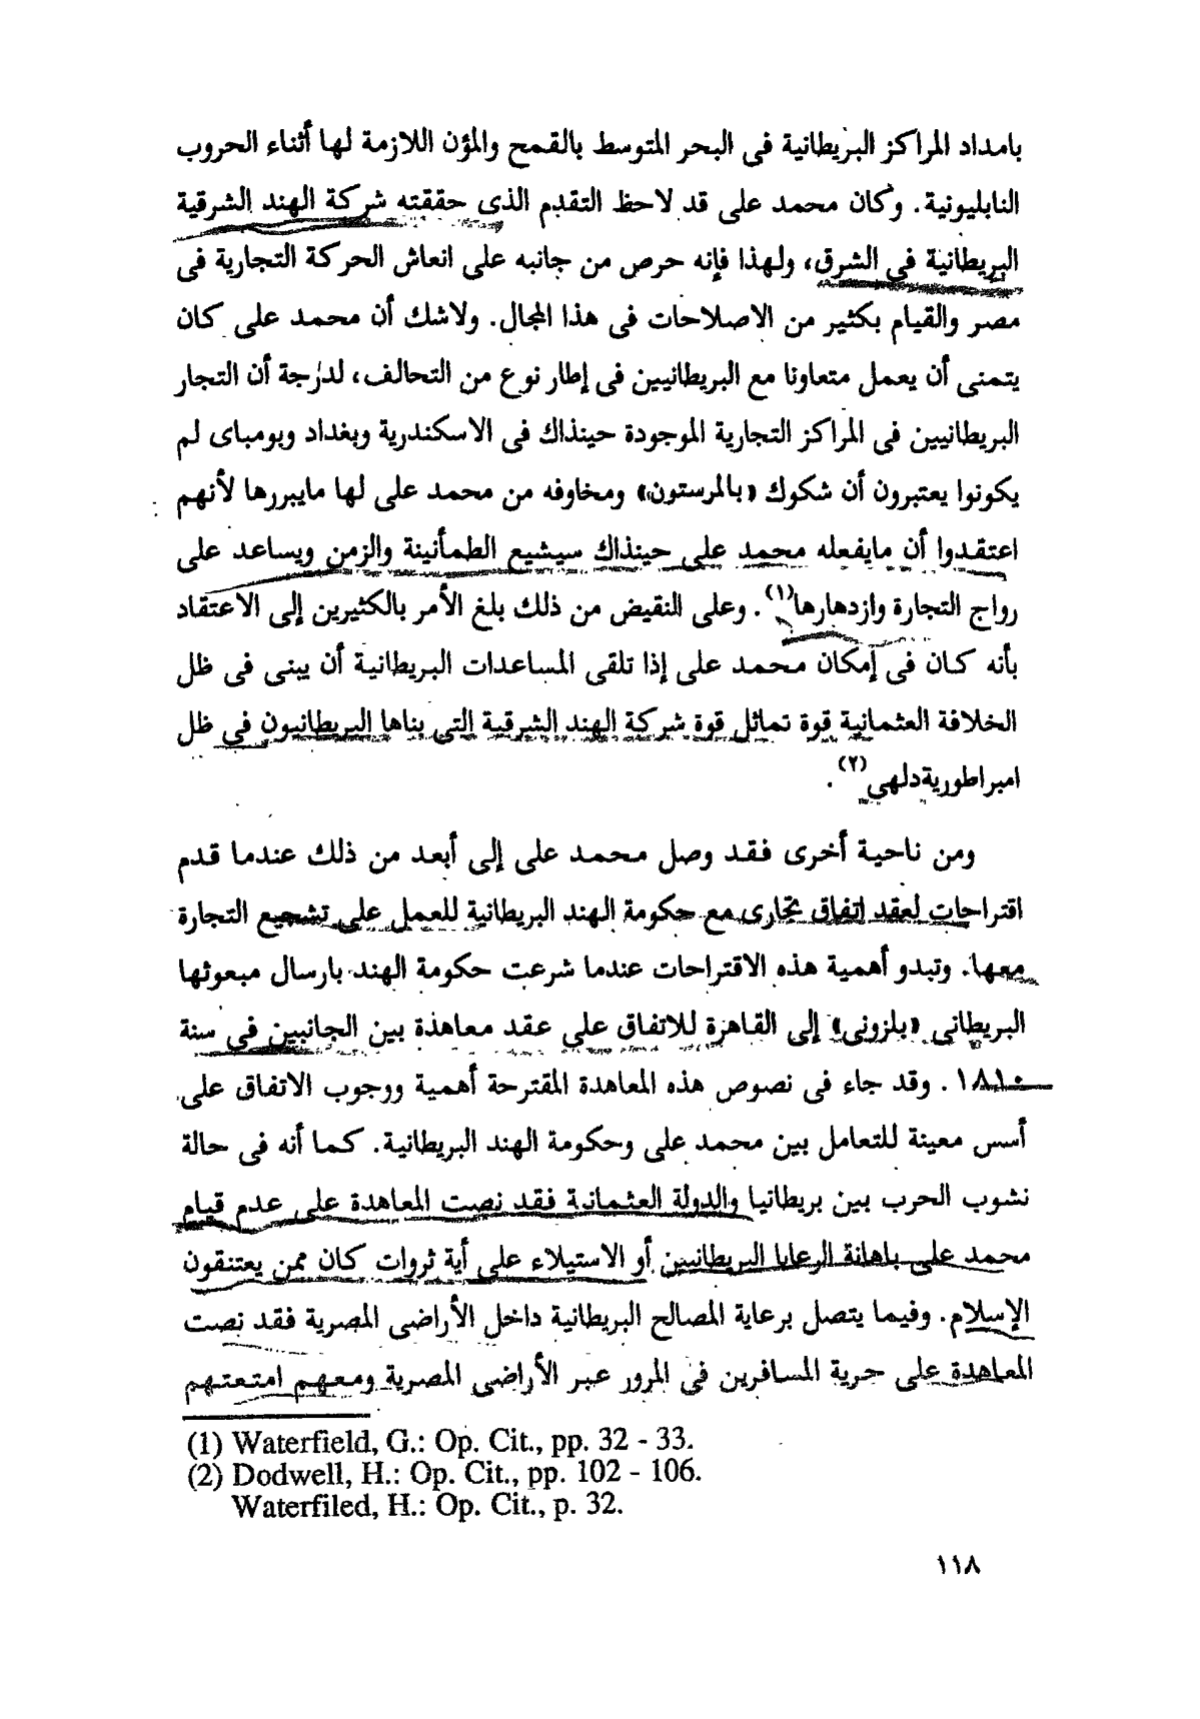 بامداد المراكز البريطانية فى البحر المتوسط بالقمح والمؤن اللازمة لها أثناء الحروب
النابليونية. وكان محمد على قد لاحظ التقدم الذى حققته شركة الهند الشرقية
البريطانية فى الشرق، ولهذا فإنه حرص من جانبه على انعاش الحركة التجارية فى
مصر والقيام بكثير من الاصلاحات فى هذا المجال. ولاشك أن محمد على كان
يتمنى أن يعمل متعاونا مع البريطانيين فى إطار نوع من التحالف، لدرجة أن التجار
البريطانيين فى المراكز التجارية الموجودة حينذاك فى الاسكندرية وبغداد وبومباى لم
يكونوا يعتبرون أن شكوك «بالمرستون» ومخاوفه من محمد على لها مايبررها لأنهم
اعتقدوا أن مايفعله محمد على حينذاك سيشيع الطمأنينة والزمن ويساعد على
رواج التجارة وازدهارها(١). وعلى النقيض من ذلك بلغ الأمر بالكثيرين إلى الاعتقاد
بأنه كان فى إمكان محمد على إذا تلقى المساعدات البريطانية أن يبنى فى ظل
الخلافة العثمانية قوة تماثل قوة شركة الهند الشرقية التى بناها البريطانيون فى ظل
امبراطورية دلهى(٢).
ومن ناحية أخرى فقد وصل محمد على إلى أبعد من ذلك عندما قدم
اقتراحات لعقد إتفاق تجارى مع حكومة الهند البريطانية للعمل على تشجيع التجارة
معها. وتبدو أهمية هذه الاقتراحات عندما شرعت حكومة الهند بارسال مبعوثها
البريطانى «بلزونى» إلى القاهرة للاتفاق على عقد معاهذة بين الجانبين فى سنة
١٨١٠. وقد جاء فى نصوص هذه المعاهدة المقترحة أهمية ووجوب الاتفاق على
أسس معينة للتعامل بين محمد على وحكومة الهند البريطانية. كما أنه فى حالة
نشوب الحرب بين بريطانيا والدولة العثمانية فقد نصت المعاهدة على عدم قيام
محمد على باهانة الرعايا البريطانيين أو الاستيلاء على أية ثروات كان ممن يعتنقون
الإسلام. وفيما يتصل برعاية المصالح البريطانية داخل الأراضى المصرية فقد نصت
المعاهدة على حرية المسافرين فى المرور عبر الأراضى المصرية ومعهم امتعتهم
(1) Waterfield, G.: Op. Cit., pp. 32 - 33.
(2) Dodwell, H.: Op. Cit., pp. 102 - 106.
Waterfiled, H.: Op. Cit., p. 32.
١١٨